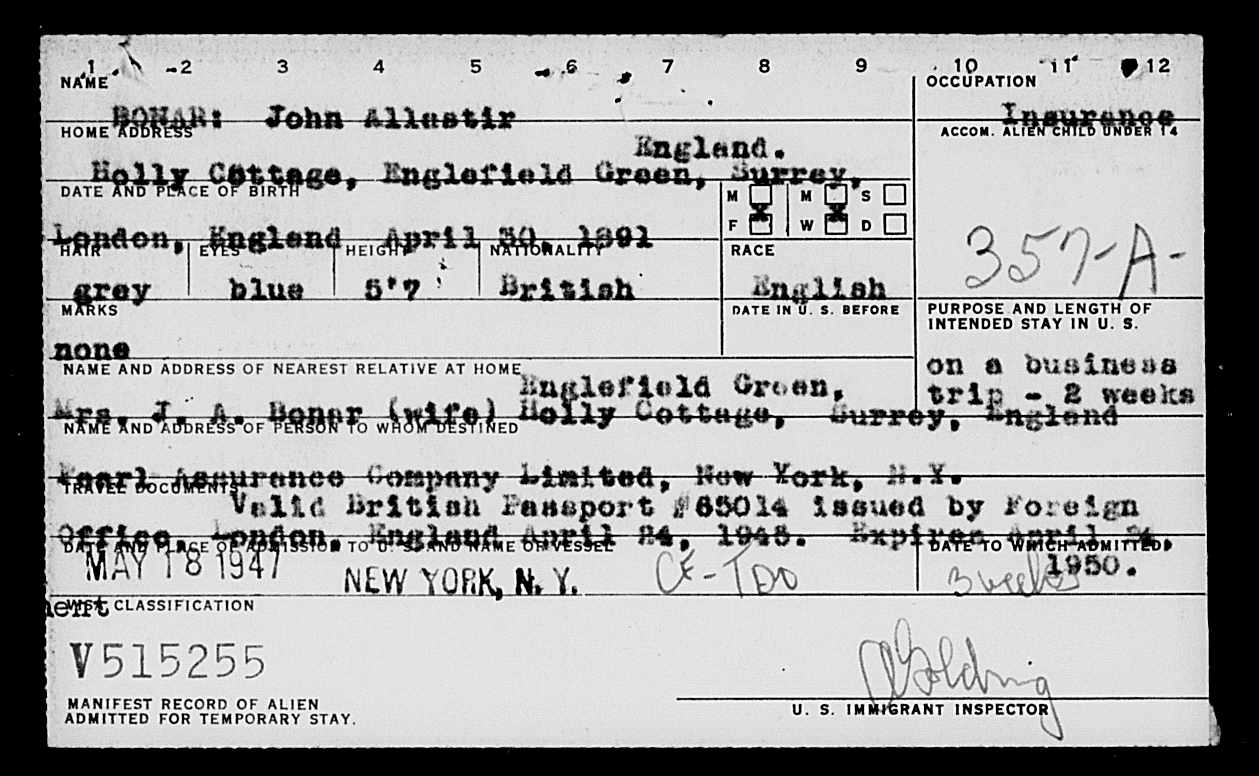 1 2 3 4 5 6 7 8 9 10 11 12
NAME OCCUPATION
BONAR: John Allastir Insurance
HOME ADDRESS ACCOM. ALIEN CHILD UNDER 14
England.
Holly Cottage, Englefield Green, Surrey,
DATE AND PLACE OF BIRTH M M S
F X W X D
London, England April 30, 1891
HAIR EYES HEIGHT NATIONALITY RACE 357-A-
grey blue 5'7 British English
MARKS DATE IN U. S. BEFORE PURPOSE AND LENGTH OF
INTENDED STAY IN U. S.
none
NAME AND ADDRESS OF NEAREST RELATIVE AT HOME on a business
Englefield Green, trip - 2 weeks
Mrs. J. A. Bonar (wife) Holly Cottage, Surrey, England
NAME AND ADDRESS OF PERSON TO WHOM DESTINED
Pearl Assurance Company Limited, New York, N.Y.
TRAVEL DOCUMENTS
Valid British Passport #65014 issued by Foreign
Office, London, England April 24, 1945. Expires April 24,
DATE AND PLACE OF ADMISSION TO U. S. AND NAME OF VESSEL DATE TO WHICH ADMITTED
1950.
MAY 18 1947 NEW YORK, N. Y. 3 weeks
VISA CLASSIFICATION
V515255
MANIFEST RECORD OF ALIEN
ADMITTED FOR TEMPORARY STAY.
Golding
U. S. IMMIGRANT INSPECTOR